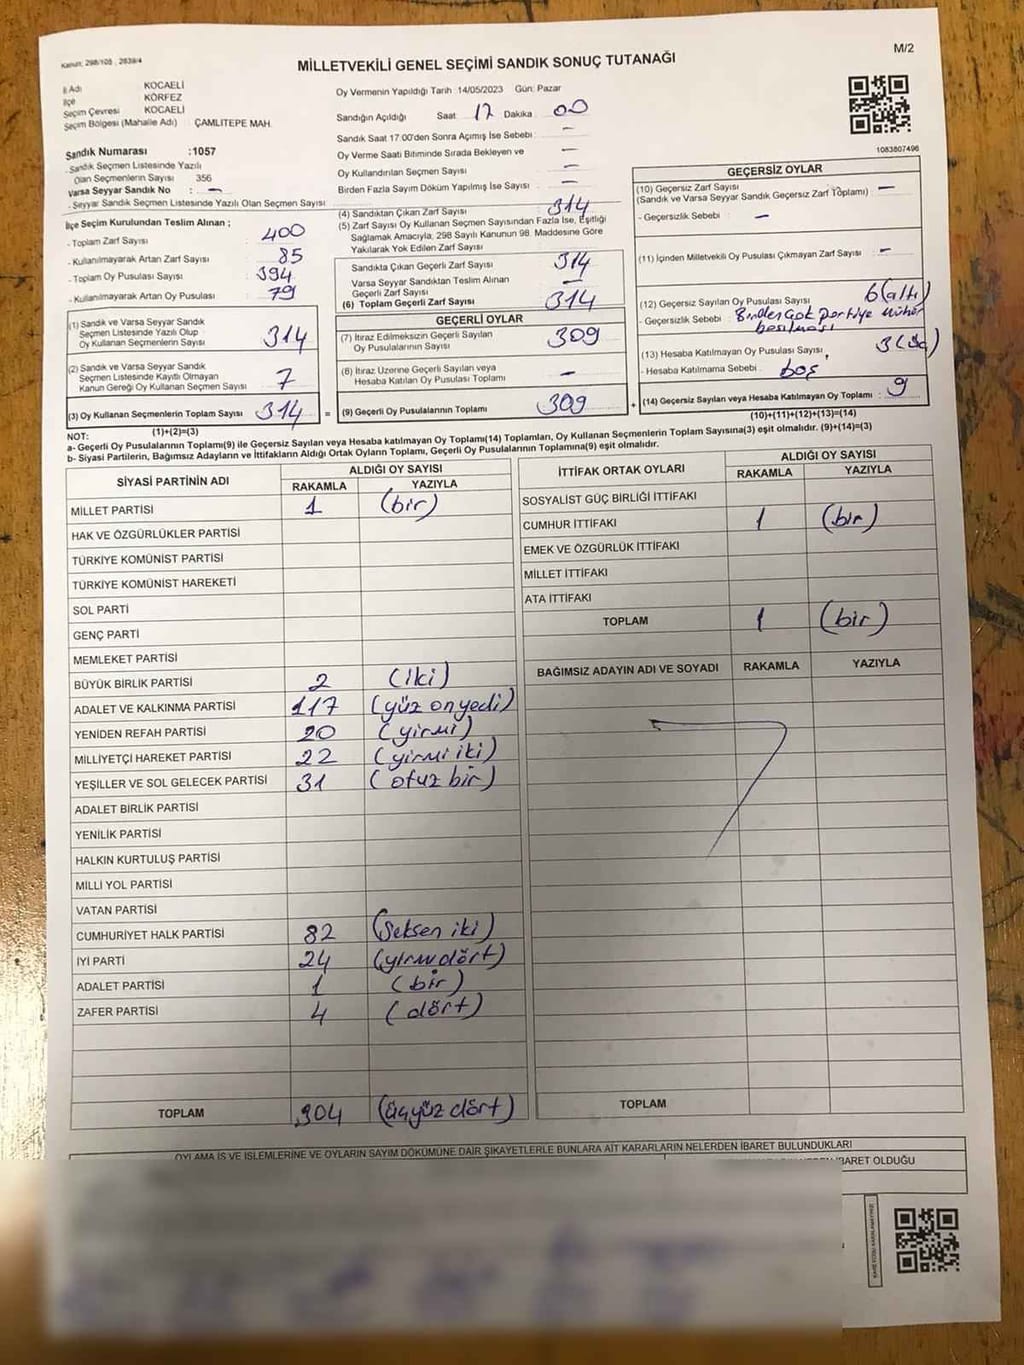 Kanun: 298/105 , 2839/4
M/2
MİLLETVEKİLİ GENEL SEÇİMİ SANDIK SONUÇ TUTANAĞI
İl Adı KOCAELİ
İlçe KÖRFEZ
Seçim Çevresi KOCAELİ
Seçim Bölgesi (Mahalle Adı) ÇAMLITEPE MAH.
Sandık Numarası :1057
- Sandık Seçmen Listesinde Yazılı
Olan Seçmenlerin Sayısı 356
Varsa Seyyar Sandık No : —
- Seyyar Sandık Seçmen Listesinde Yazılı Olan Seçmen Sayısı
Oy Vermenin Yapıldığı Tarih 14/05/2023 Gün: Pazar
Sandığın Açıldığı Saat 17 Dakika 00
Sandık Saat 17:00'den Sonra Açımış İse Sebebi : —
Oy Verme Saati Bitiminde Sırada Bekleyen ve —
Oy Kullandırılan Seçmen Sayısı —
Birden Fazla Sayım Döküm Yapılmış İse Sayısı —
1083807496
İlçe Seçim Kurulundan Teslim Alınan ;
- Toplam Zarf Sayısı 400
- Kullanılmayarak Artan Zarf Sayısı 85
- Toplam Oy Pusulası Sayısı 394
- Kullanılmayarak Artan Oy Pusulası 79
(1) Sandık ve Varsa Seyyar Sandık
Seçmen Listesinde Yazılı Olup
Oy Kullanan Seçmenlerin Sayısı 314
(2) Sandık ve Varsa Seyyar Sandık
Seçmen Listesinde Kayıtlı Olmayan
Kanun Gereği Oy Kullanan Seçmen Sayısı 7
(3) Oy Kullanan Seçmenlerin Toplam Sayısı 314 =
(1)+(2)=(3)
(4) Sandıktan Çıkan Zarf Sayısı 314
(5) Zarf Sayısı Oy Kullanan Seçmen Sayısından Fazla İse, Eşitliği
Sağlamak Amacıyla; 298 Sayılı Kanunun 98. Maddesine Göre
Yakılarak Yok Edilen Zarf Sayısı
Sandıkta Çıkan Geçerli Zarf Sayısı 314
Varsa Seyyar Sandıktan Teslim Alınan
Geçerli Zarf Sayısı —
(6) Toplam Geçerli Zarf Sayısı 314
GEÇERLİ OYLAR
(7) İtiraz Edilmeksizin Geçerli Sayılan
Oy Pusulalarının Sayısı 309
(8) İtiraz Üzerine Geçerli Sayılan veya
Hesaba Katılan Oy Pusulası Toplamı —
(9) Geçerli Oy Pusulalarının Toplamı 309 +
GEÇERSİZ OYLAR
(10) Geçersiz Zarf Sayısı —
(Sandık ve Varsa Seyyar Sandık Geçersiz Zarf Toplamı)
- Geçersizlik Sebebi : —
(11) İçinden Milletvekili Oy Pusulası Çıkmayan Zarf Sayısı —
(12) Geçersiz Sayılan Oy Pusulası Sayısı 6 (altı)
- Geçersizlik Sebebi : Birden çok partiye mühür
basılması
(13) Hesaba Katılmayan Oy Pusulası Sayısı 3 (üç)
- Hesaba Katılmama Sebebi : boş
(14) Geçersiz Sayılan veya Hesaba Katılmayan Oy Toplamı : 9
(10)+(11)+(12)+(13)=(14)
NOT:
a- Geçerli Oy Pusulalarının Toplamı(9) ile Geçersiz Sayılan veya Hesaba katılmayan Oy Toplamı(14) Toplamları, Oy Kullanan Seçmenlerin Toplam Sayısına(3) eşit olmalıdır. (9)+(14)=(3)
b- Siyasi Partilerin, Bağımsız Adayların ve İttifakların Aldığı Ortak Oyların Toplamı, Geçerli Oy Pusulalarının Toplamına(9) eşit olmalıdır.
SİYASİ PARTİNİN ADI ALDIĞI OY SAYISI
RAKAMLA YAZIYLA
MİLLET PARTİSİ 1 (bir)
HAK VE ÖZGÜRLÜKLER PARTİSİ
TÜRKİYE KOMÜNİST PARTİSİ
TÜRKİYE KOMÜNİST HAREKETİ
SOL PARTİ
GENÇ PARTİ
MEMLEKET PARTİSİ
BÜYÜK BİRLİK PARTİSİ 2 (iki)
ADALET VE KALKINMA PARTİSİ 117 (yüz onyedi)
YENİDEN REFAH PARTİSİ 20 (yirmi)
MİLLİYETÇİ HAREKET PARTİSİ 22 (yirmi iki)
YEŞİLLER VE SOL GELECEK PARTİSİ 31 (otuz bir)
ADALET BİRLİK PARTİSİ
YENİLİK PARTİSİ
HALKIN KURTULUŞ PARTİSİ
MİLLİ YOL PARTİSİ
VATAN PARTİSİ
CUMHURİYET HALK PARTİSİ 82 (seksen iki)
İYİ PARTİ 24 (yirmi dört)
ADALET PARTİSİ 1 (bir)
ZAFER PARTİSİ 4 (dört)
TOPLAM 304 (üçyüz dört)
İTTİFAK ORTAK OYLARI ALDIĞI OY SAYISI
RAKAMLA YAZIYLA
SOSYALİST GÜÇ BİRLİĞİ İTTİFAKI
CUMHUR İTTİFAKI 1 (bir)
EMEK VE ÖZGÜRLÜK İTTİFAKI
MİLLET İTTİFAKI
ATA İTTİFAKI
TOPLAM 1 (bir)
BAĞIMSIZ ADAYIN ADI VE SOYADI RAKAMLA YAZIYLA
TOPLAM
OYLAMA İŞ VE İŞLEMLERİNE VE OYLARIN SAYIM DÖKÜMÜNE DAİR ŞİKAYETLERLE BUNLARA AİT KARARLARIN NELERDEN İBARET BULUNDUKLARI
İBARET OLDUĞU